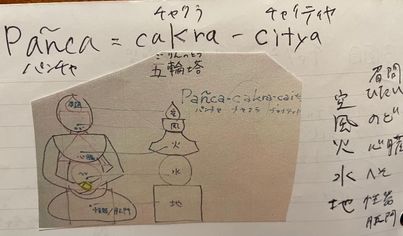 チャクラ チャイティヤ
Pañca = cakra - citya
パンチャ ごりんのとう
五輪塔
Pañca-cakra-cait
パンチャ チャクラ チャイティヤ
空
風
火
水
地
心臓
へそ
性器/肛門
空 眉間 ひたい
風 のど
火 心臓
水 へそ
地 性器 肛門